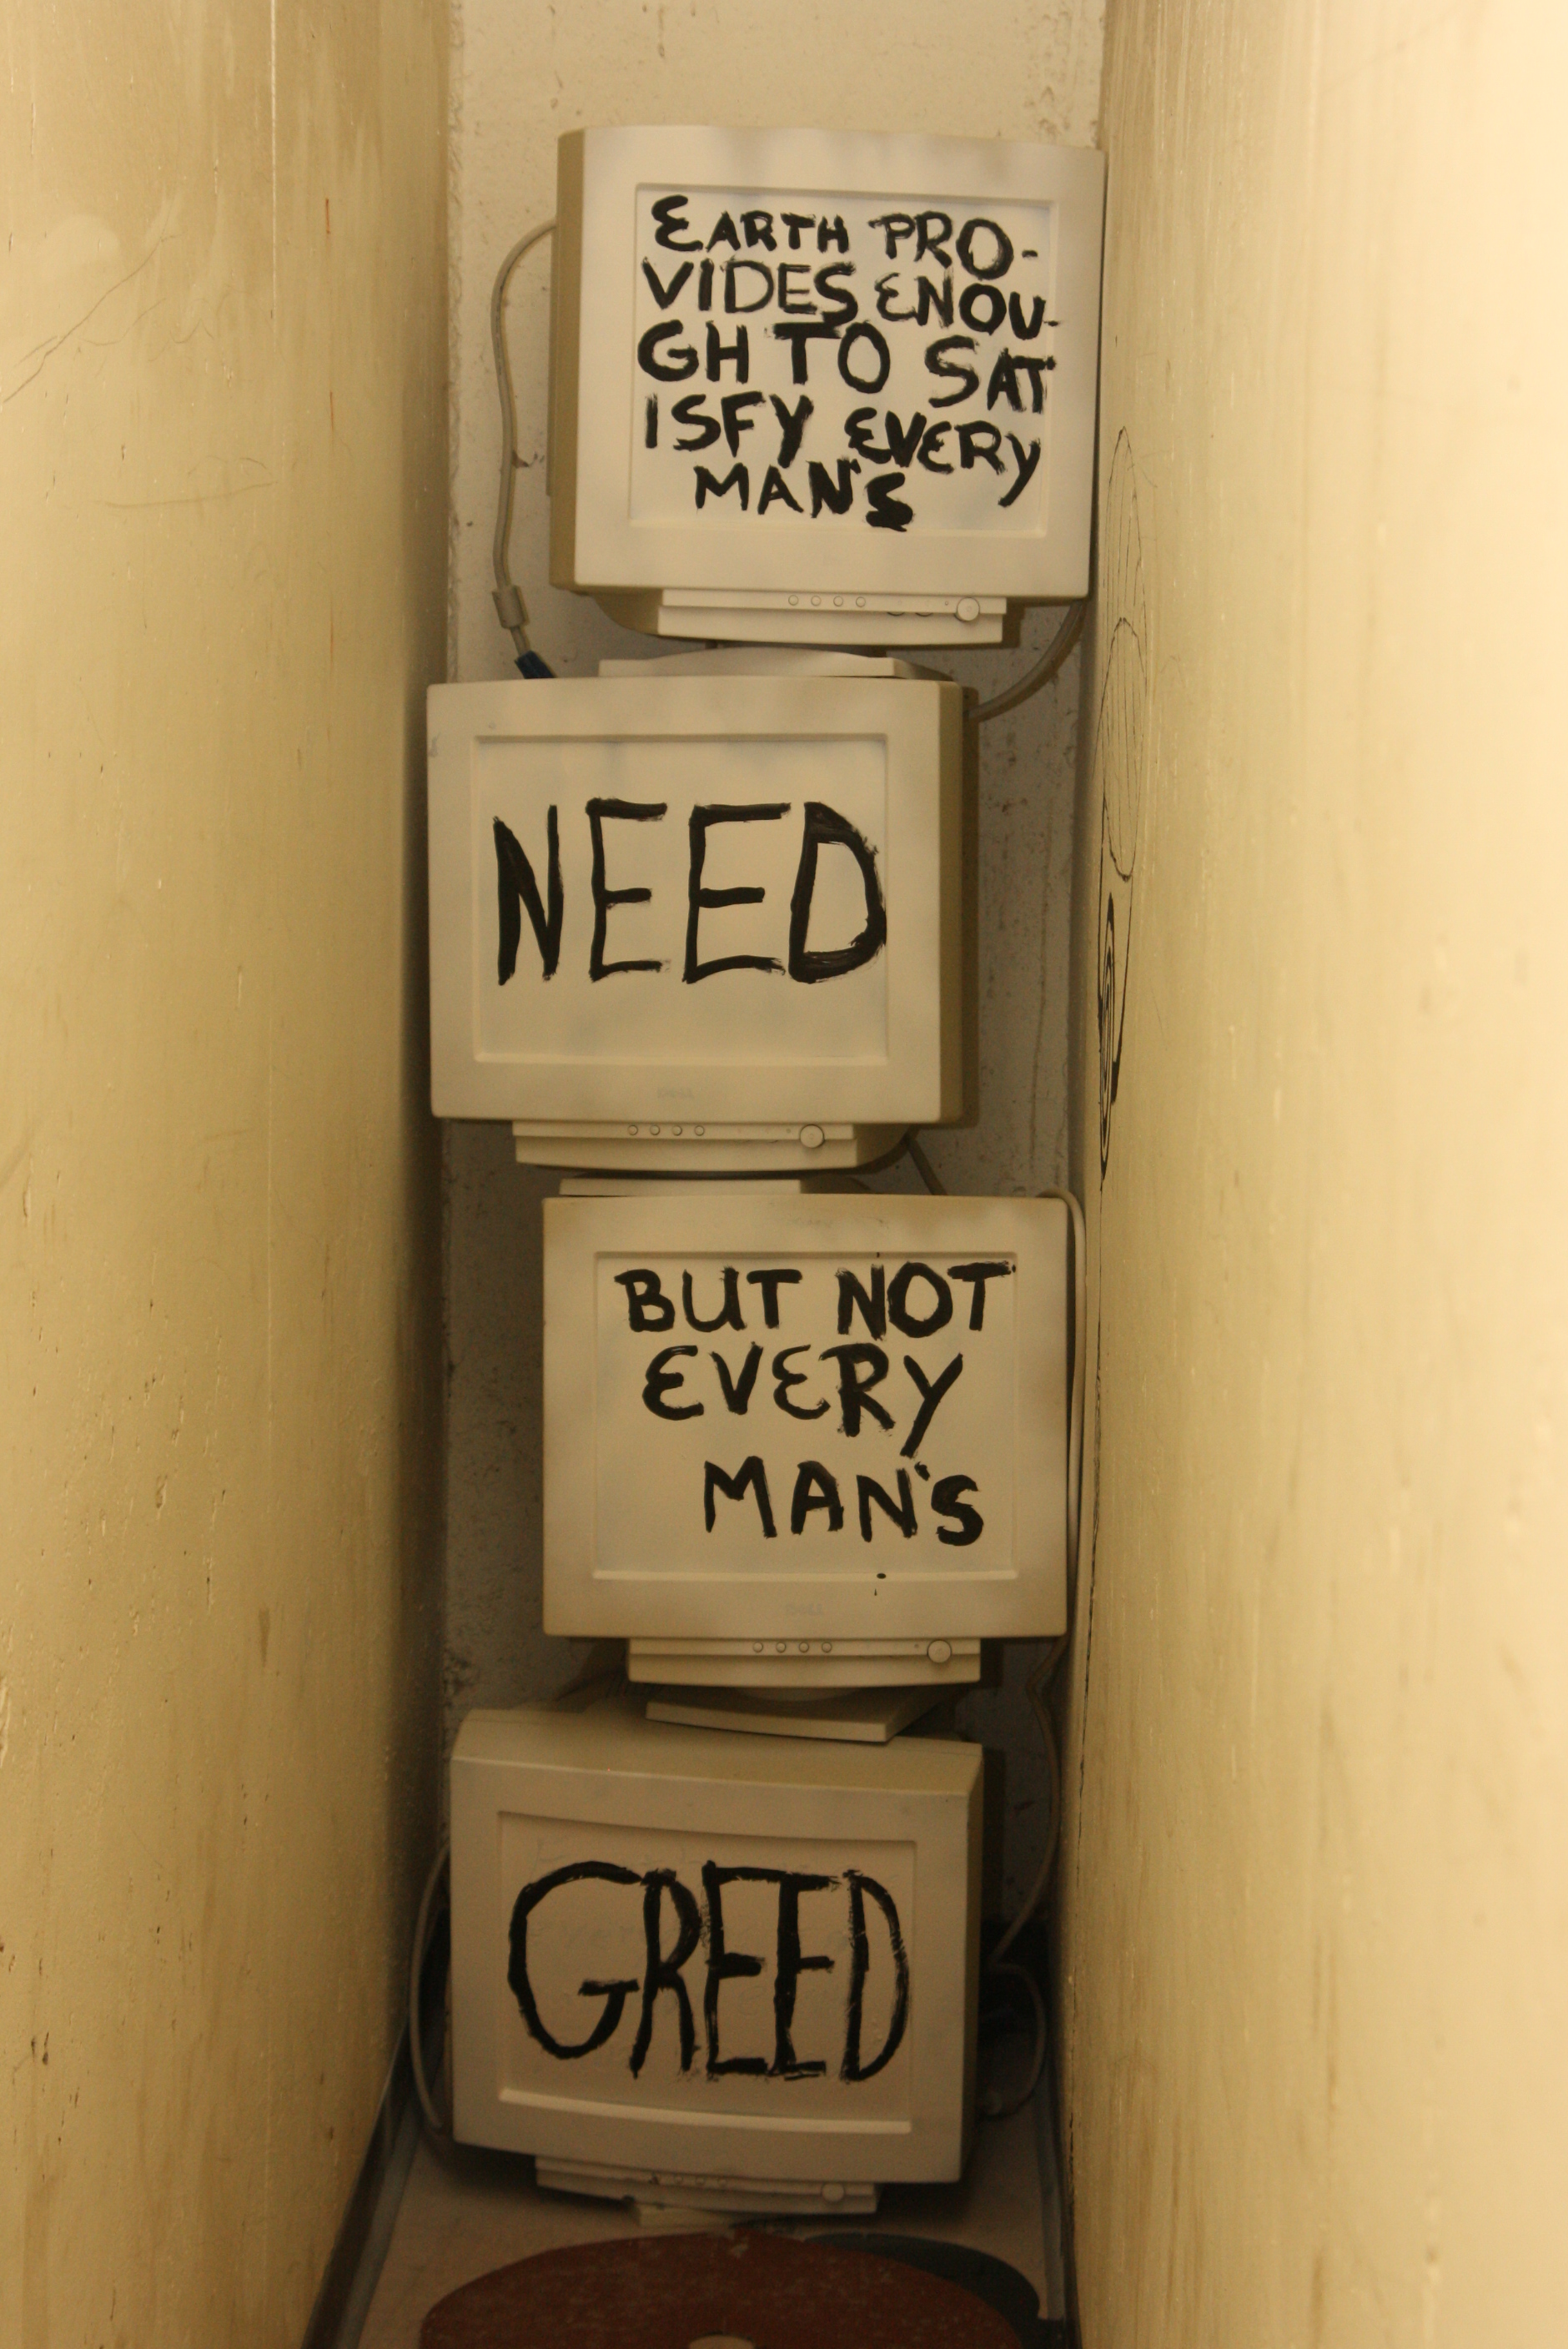 EARTH PRO-
VIDES ENOU-
GH TO SAT
ISFY EVERY
MAN'S
NEED
BUT NOT
EVERY
MAN'S
GREED